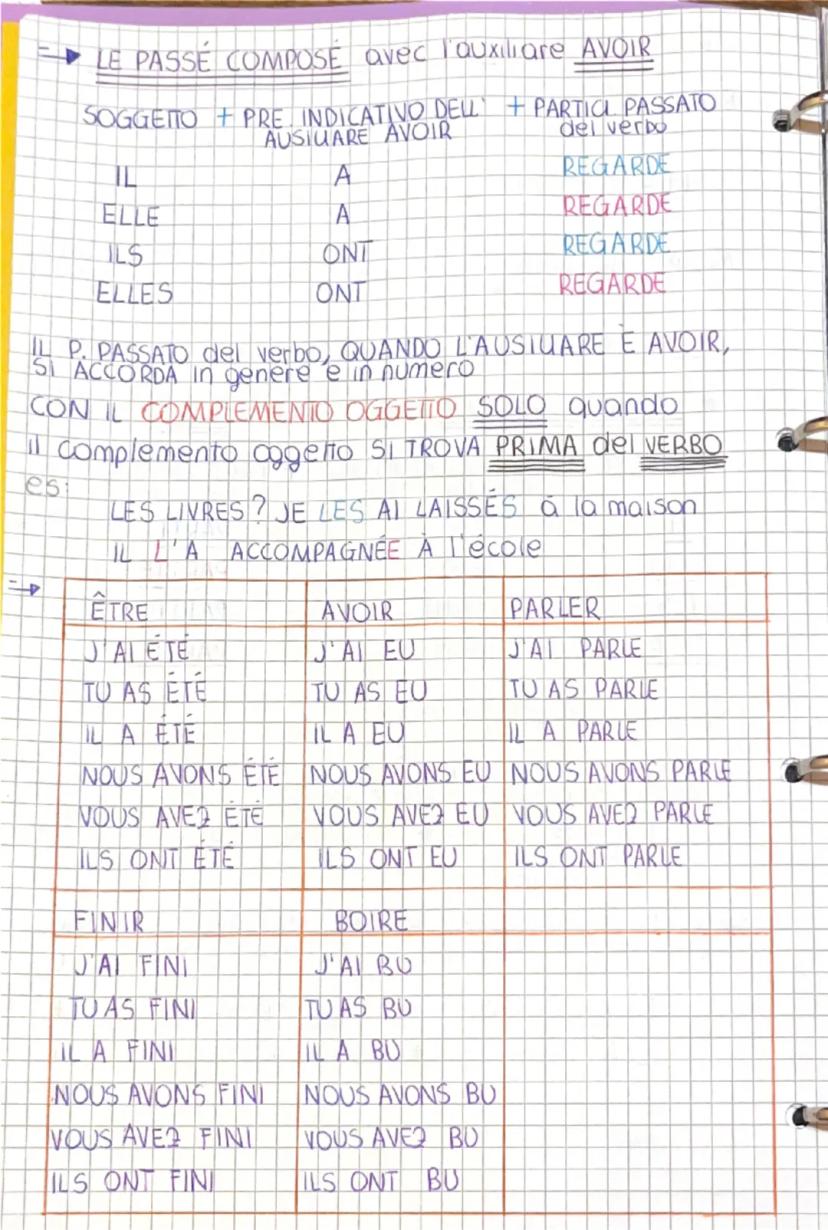 LE PASSÉ COMPOSÉ avec l'auxiliare AVOIR
SOGGETTO + PRE. INDICATIVO DELL' AUSILIARE AVOIR + PARTICI. PASSATO del verbo
IL A REGARDE
ELLE A REGARDE
ILS ONT REGARDE
ELLES ONT REGARDE
IL P. PASSATO del verbo, QUANDO L'AUSILIARE È AVOIR,
SI ACCORDA in genere e in numero
CON IL COMPLEMENTO OGGETTO SOLO quando
il complemento oggetto SI TROVA PRIMA del VERBO
es:
LES LIVRES? JE LES AI LAISSÉS à la maison
IL L'A ACCOMPAGNÉE À l'école
ÊTRE AVOIR PARLER
J'AI ÉTÉ J'AI EU J'AI PARLE
TU AS ÉTÉ TU AS EU TU AS PARLE
IL A ÉTÉ IL A EU IL A PARLE
NOUS AVONS ÉTÉ NOUS AVONS EU NOUS AVONS PARLE
VOUS AVEZ ÉTÉ VOUS AVEZ EU VOUS AVEZ PARLE
ILS ONT ÉTÉ ILS ONT EU ILS ONT PARLE
FINIR BOIRE
J'AI FINI J'AI BU
TU AS FINI TU AS BU
IL A FINI IL A BU
NOUS AVONS FINI NOUS AVONS BU
VOUS AVEZ FINI VOUS AVEZ BU
ILS ONT FINI ILS ONT BU